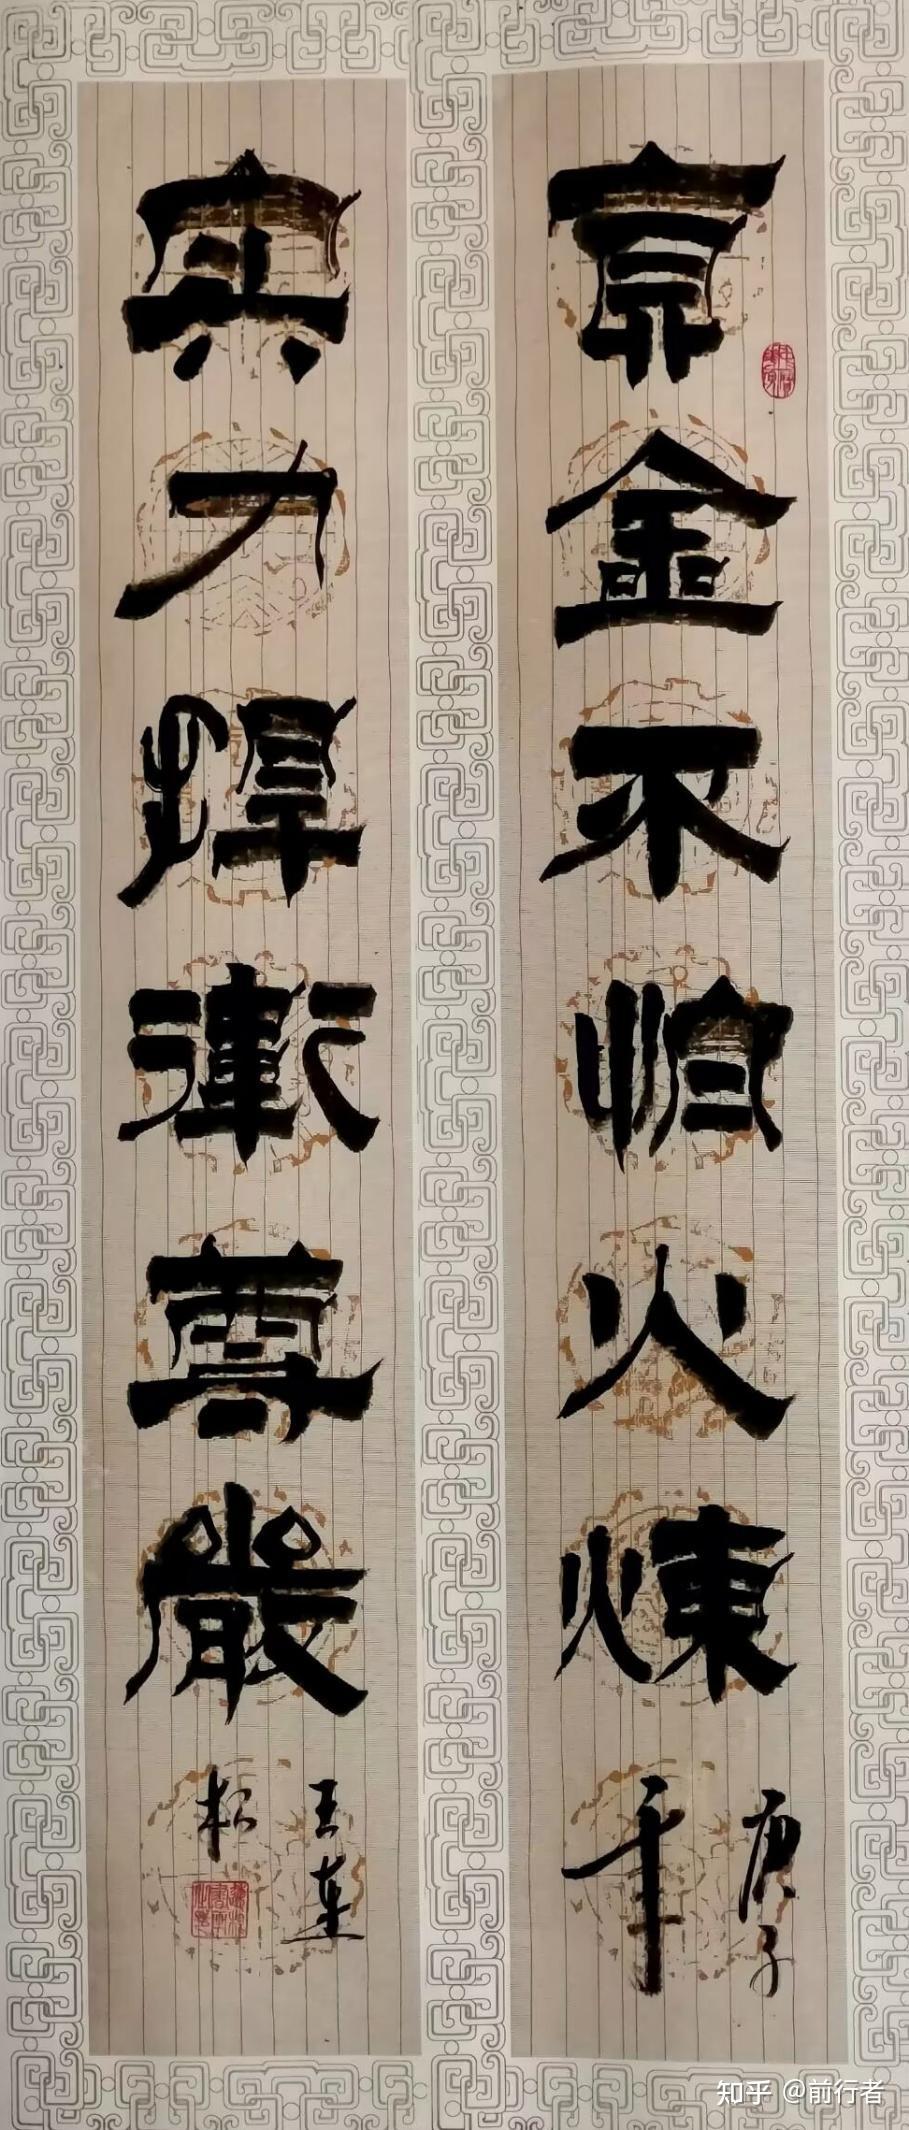 真金不怕火煉
庚子
年
实力捍衛尊嚴
王連
松
知乎 @前行者